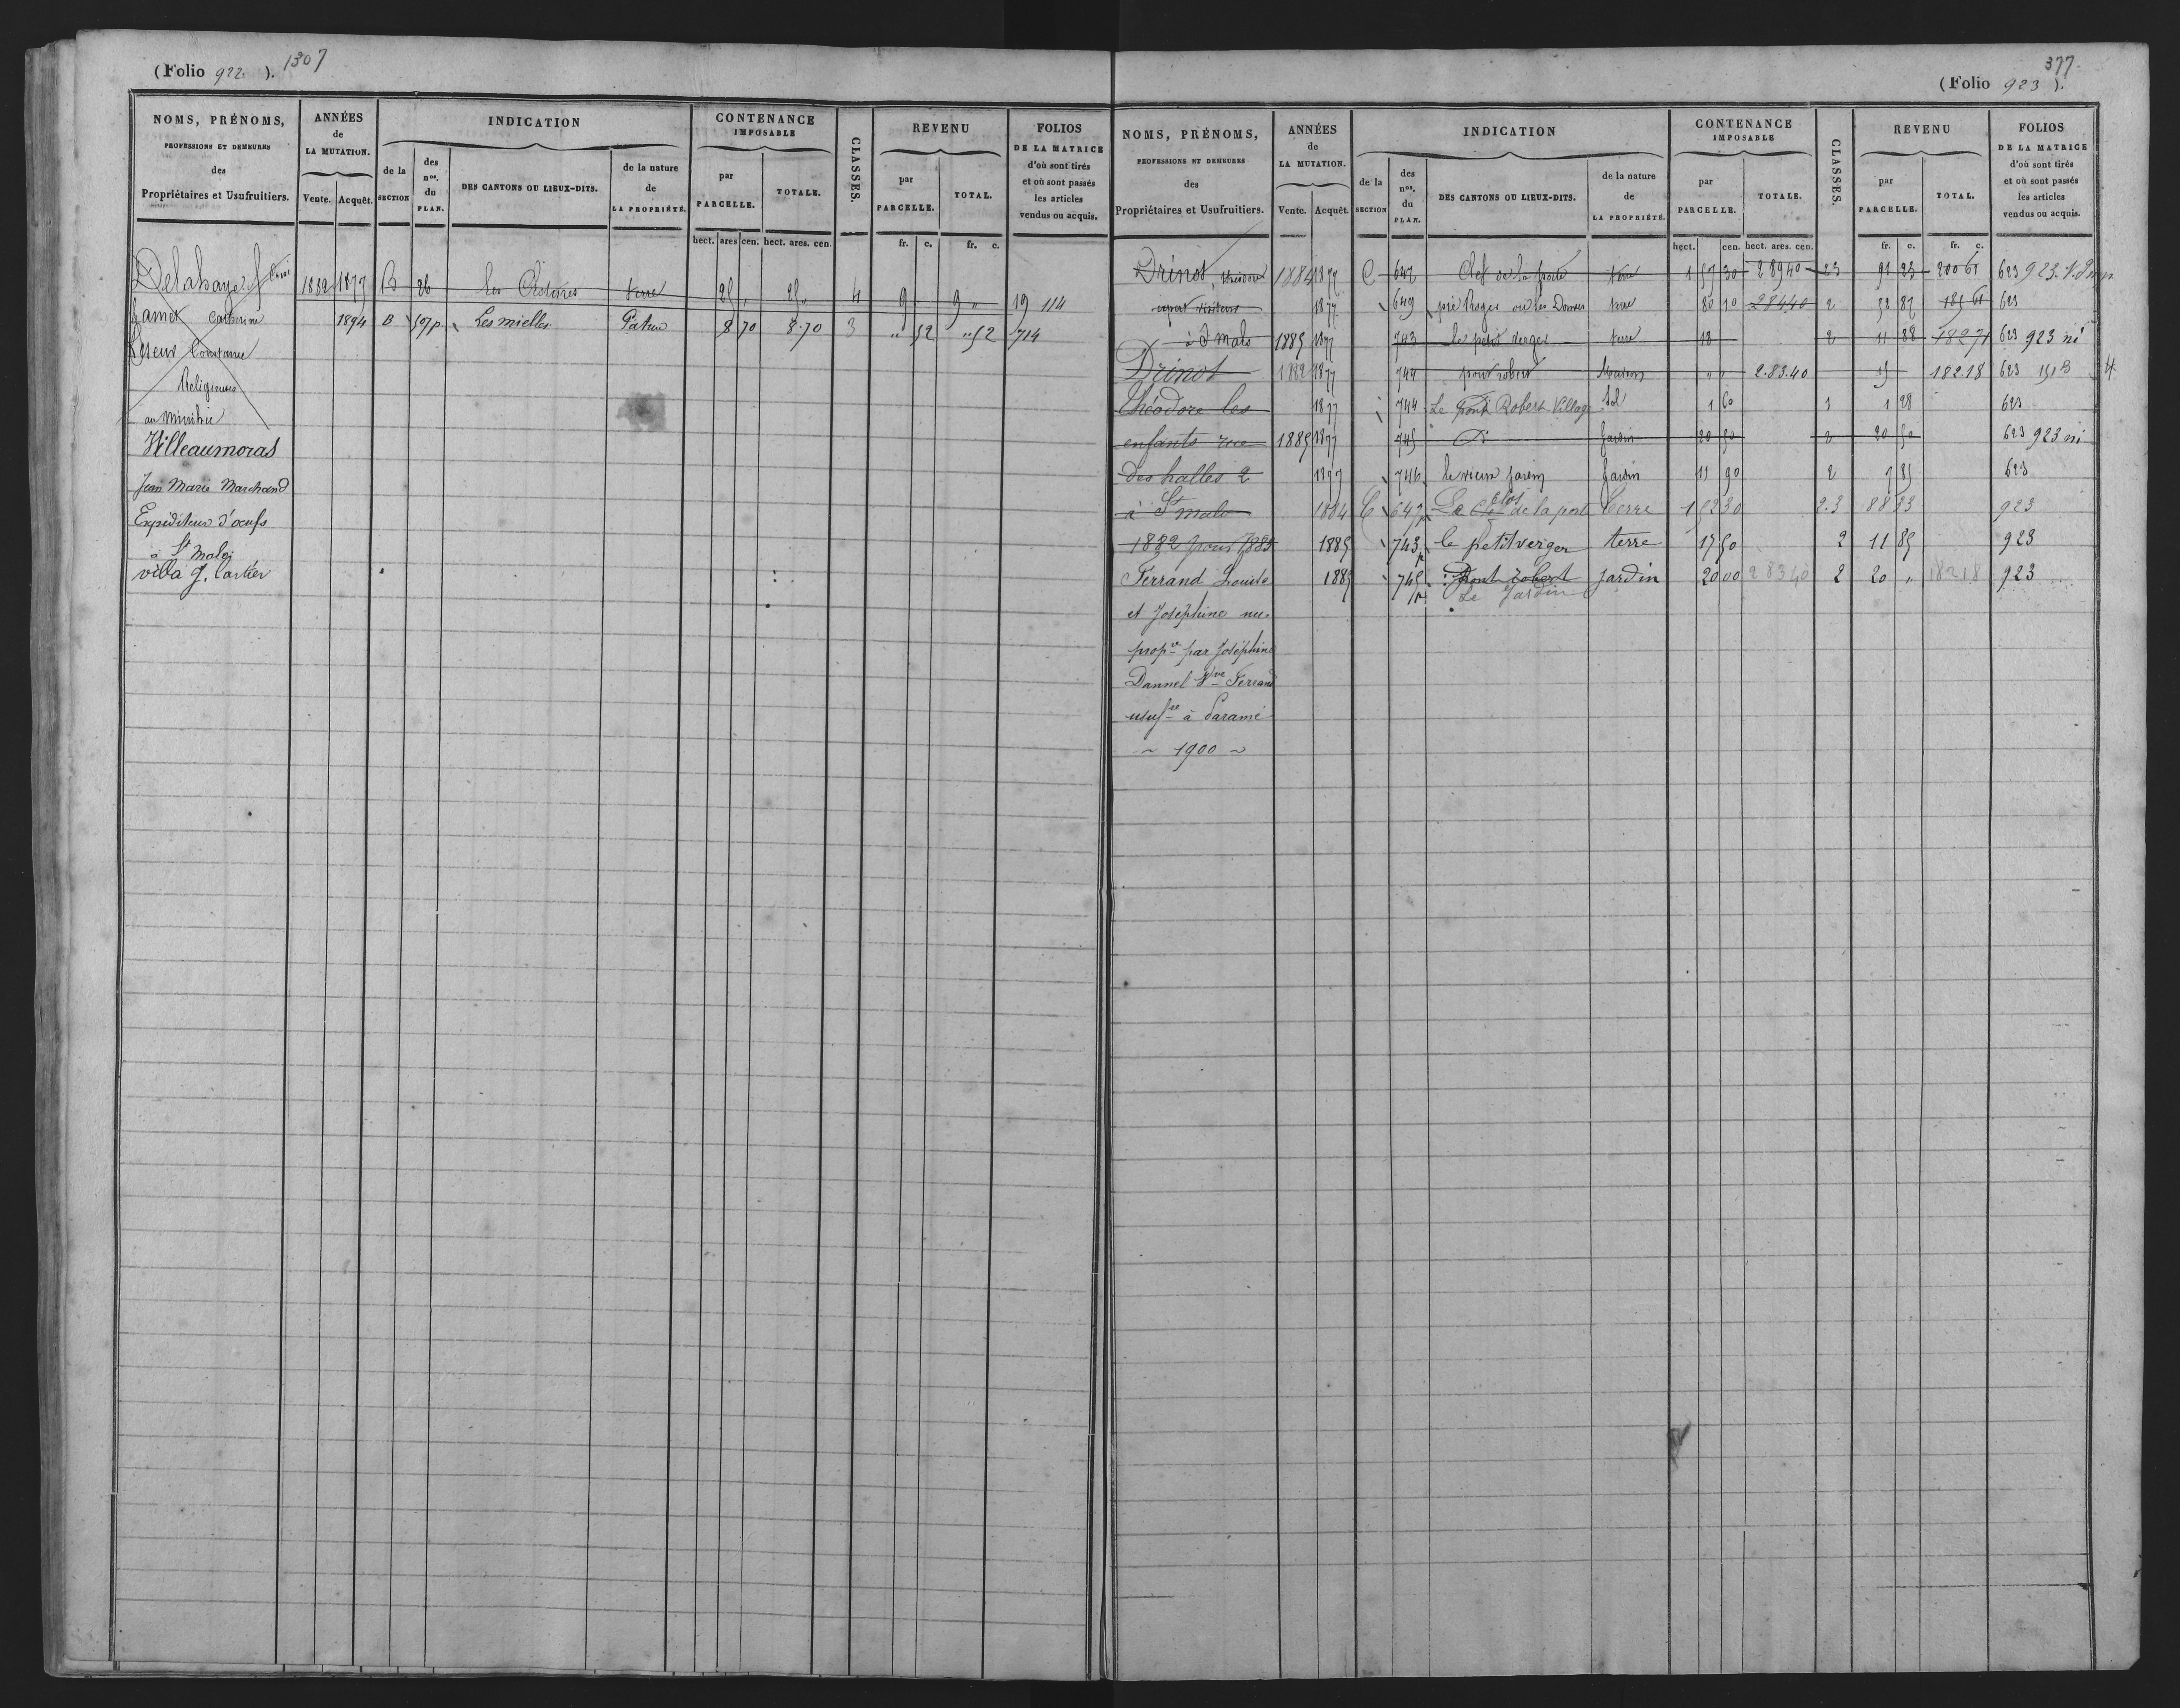 (Folio 922 ). 1307
NOMS, PRÉNOMS,
PROFESSIONS ET DEMEURES
des
Propriétaires et Usufruitiers.
ANNÉES
de
LA MUTATION.
Vente. Acquêt.
INDICATION
de la
SECTION
des
nos.
du
PLAN.
DES CANTONS OU LIEUX-DITS.
de la nature
de
LA PROPRIÉTÉ.
CONTENANCE
IMPOSABLE
par
PARCELLE.
TOTALE.
hect. ares cen. hect. ares. cen.
CLASSES.
REVENU
par
PARCELLE.
TOTAL.
fr. c. fr. c.
FOLIOS
DE LA MATRICE
d'où sont tirés
et où sont passés
les articles
vendus ou acquis.
Delahaye 1882 1877 B 26 Les terre 25 " 25 " 4 9 9 " 19 114
hamet Catherine 1894 B 507p. Les mielles Pature 8 70 8.70 3 " 52 " 52 714
Constance
Religieuses
au Minihic
Villeaumoras
Jean Marie Marchand
Expéditeur d'œufs
à St Malo
villa J. Cartier
377
(Folio 923 ).
NOMS, PRÉNOMS,
PROFESSIONS ET DEMEURES
des
Propriétaires et Usufruitiers.
ANNÉES
de
LA MUTATION.
Vente. Acquêt.
INDICATION
de la
SECTION
des
nos.
du
PLAN.
DES CANTONS OU LIEUX-DITS.
de la nature
de
LA PROPRIÉTÉ.
CONTENANCE
IMPOSABLE
par
PARCELLE.
TOTALE.
hect. cen. hect. ares. cen.
CLASSES.
REVENU
par
PARCELLE.
TOTAL.
fr. c. fr. c.
FOLIOS
DE LA MATRICE
d'où sont tirés
et où sont passés
les articles
vendus ou acquis.
Drinot, théodore 1884 1877 C 647 Clos de la porte terre 1 57 30 2 89 40 23 91 23 200 61 623 923
expert visiteur 1877 649 pré Roger ou les Douves terre 80 10 2 84 40 2 52 87 185 61 623
à S malo 1885 1877 743 le petit verger terre 18 2 11 88 182 71 623 923
Drinot 1882 1877 744 pont robert Maison " " 2.83.40 15 182 18 623
théodore les 1877 744 Le Pont Robert Village Sol 1 60 1 1 28 623
enfants rue 1885 1877 745 d° Jardin 20 50 2 20 50 623 923
des halles 2 1877 746 le vieux jardin Jardin 11 90 2 7 85 623
à St malo 1884 C 647p Le clos de la porte terre 1 52 30 2.3 88 33 923
1882 pour 1883 1885 743p le petit verger terre 17 50 2 11 85 923
Ferrand Louise 1885 745p Pont robert Jardin 20 00 2 83 40 2 20 " 182 18 923
Le Jardin
et Joséphine nu-
propre par Joséphine
Dannel Vve Ferrand
usufre à Paramé
~ 1900 ~